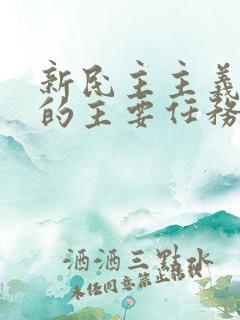 新民主主義
的主要任務
酒酒三點水
未經同意禁止轉載